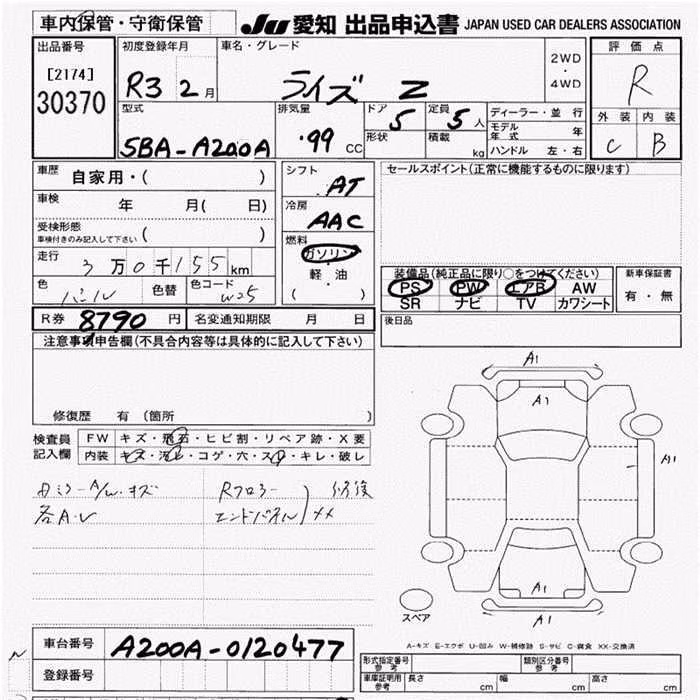 車内保管・守衛保管 JU 愛知 出品申込書 JAPAN USED CAR DEALERS ASSOCIATION
出品番号 初度登録年月 車名・グレード 評価点
[2174] R3 2月 ライズ Z 2WD・4WD R
30370
型式 排気量 ドア 定員 ディーラー・並行 外装 内装
5BA-A200A .99 CC 5 5人 モデル年式 年 C B
形状 積載 kg ハンドル 左・右
車歴 自家用・( ) シフト AT セールスポイント(正常に機能するものに限ります)
車検 年 月( 日) 冷房 AAC
受検形態 ( )
車検付きのみ記入して下さい
燃料 ガソリン
走行 3万0千155km 軽・油
( )
装備品(純正品に限り○をつけてください) 新車保証書
色 パール 色替 色コード W25 PS PW エアB AW 有・無
SR ナビ TV カワシート
R券 8790円 名変通知期限 月 日 後日品
注意事項申告欄(不具合内容等は具体的に記入して下さい)
修復歴 有 (箇所 )
検査員記入欄 FW キズ・飛石・ヒビ割・リペア跡・X要
内装 キズ・汚レ・コゲ・穴・スレ・キレ・破レ
ミラーA/W・キズ Rフロアー 修復
各A・U エンドパネル XX
A1
A1
A1
A1
A1
スペア
A-キズ E-エクボ U-凹み W-補修跡 S-サビ C-腐食 XX-交換済
車台番号 A200A-0120477
登録番号
形式指定番号 参考 類別区分番号 参考
車庫証明用 参考 長さ cm 幅 cm 高さ cm